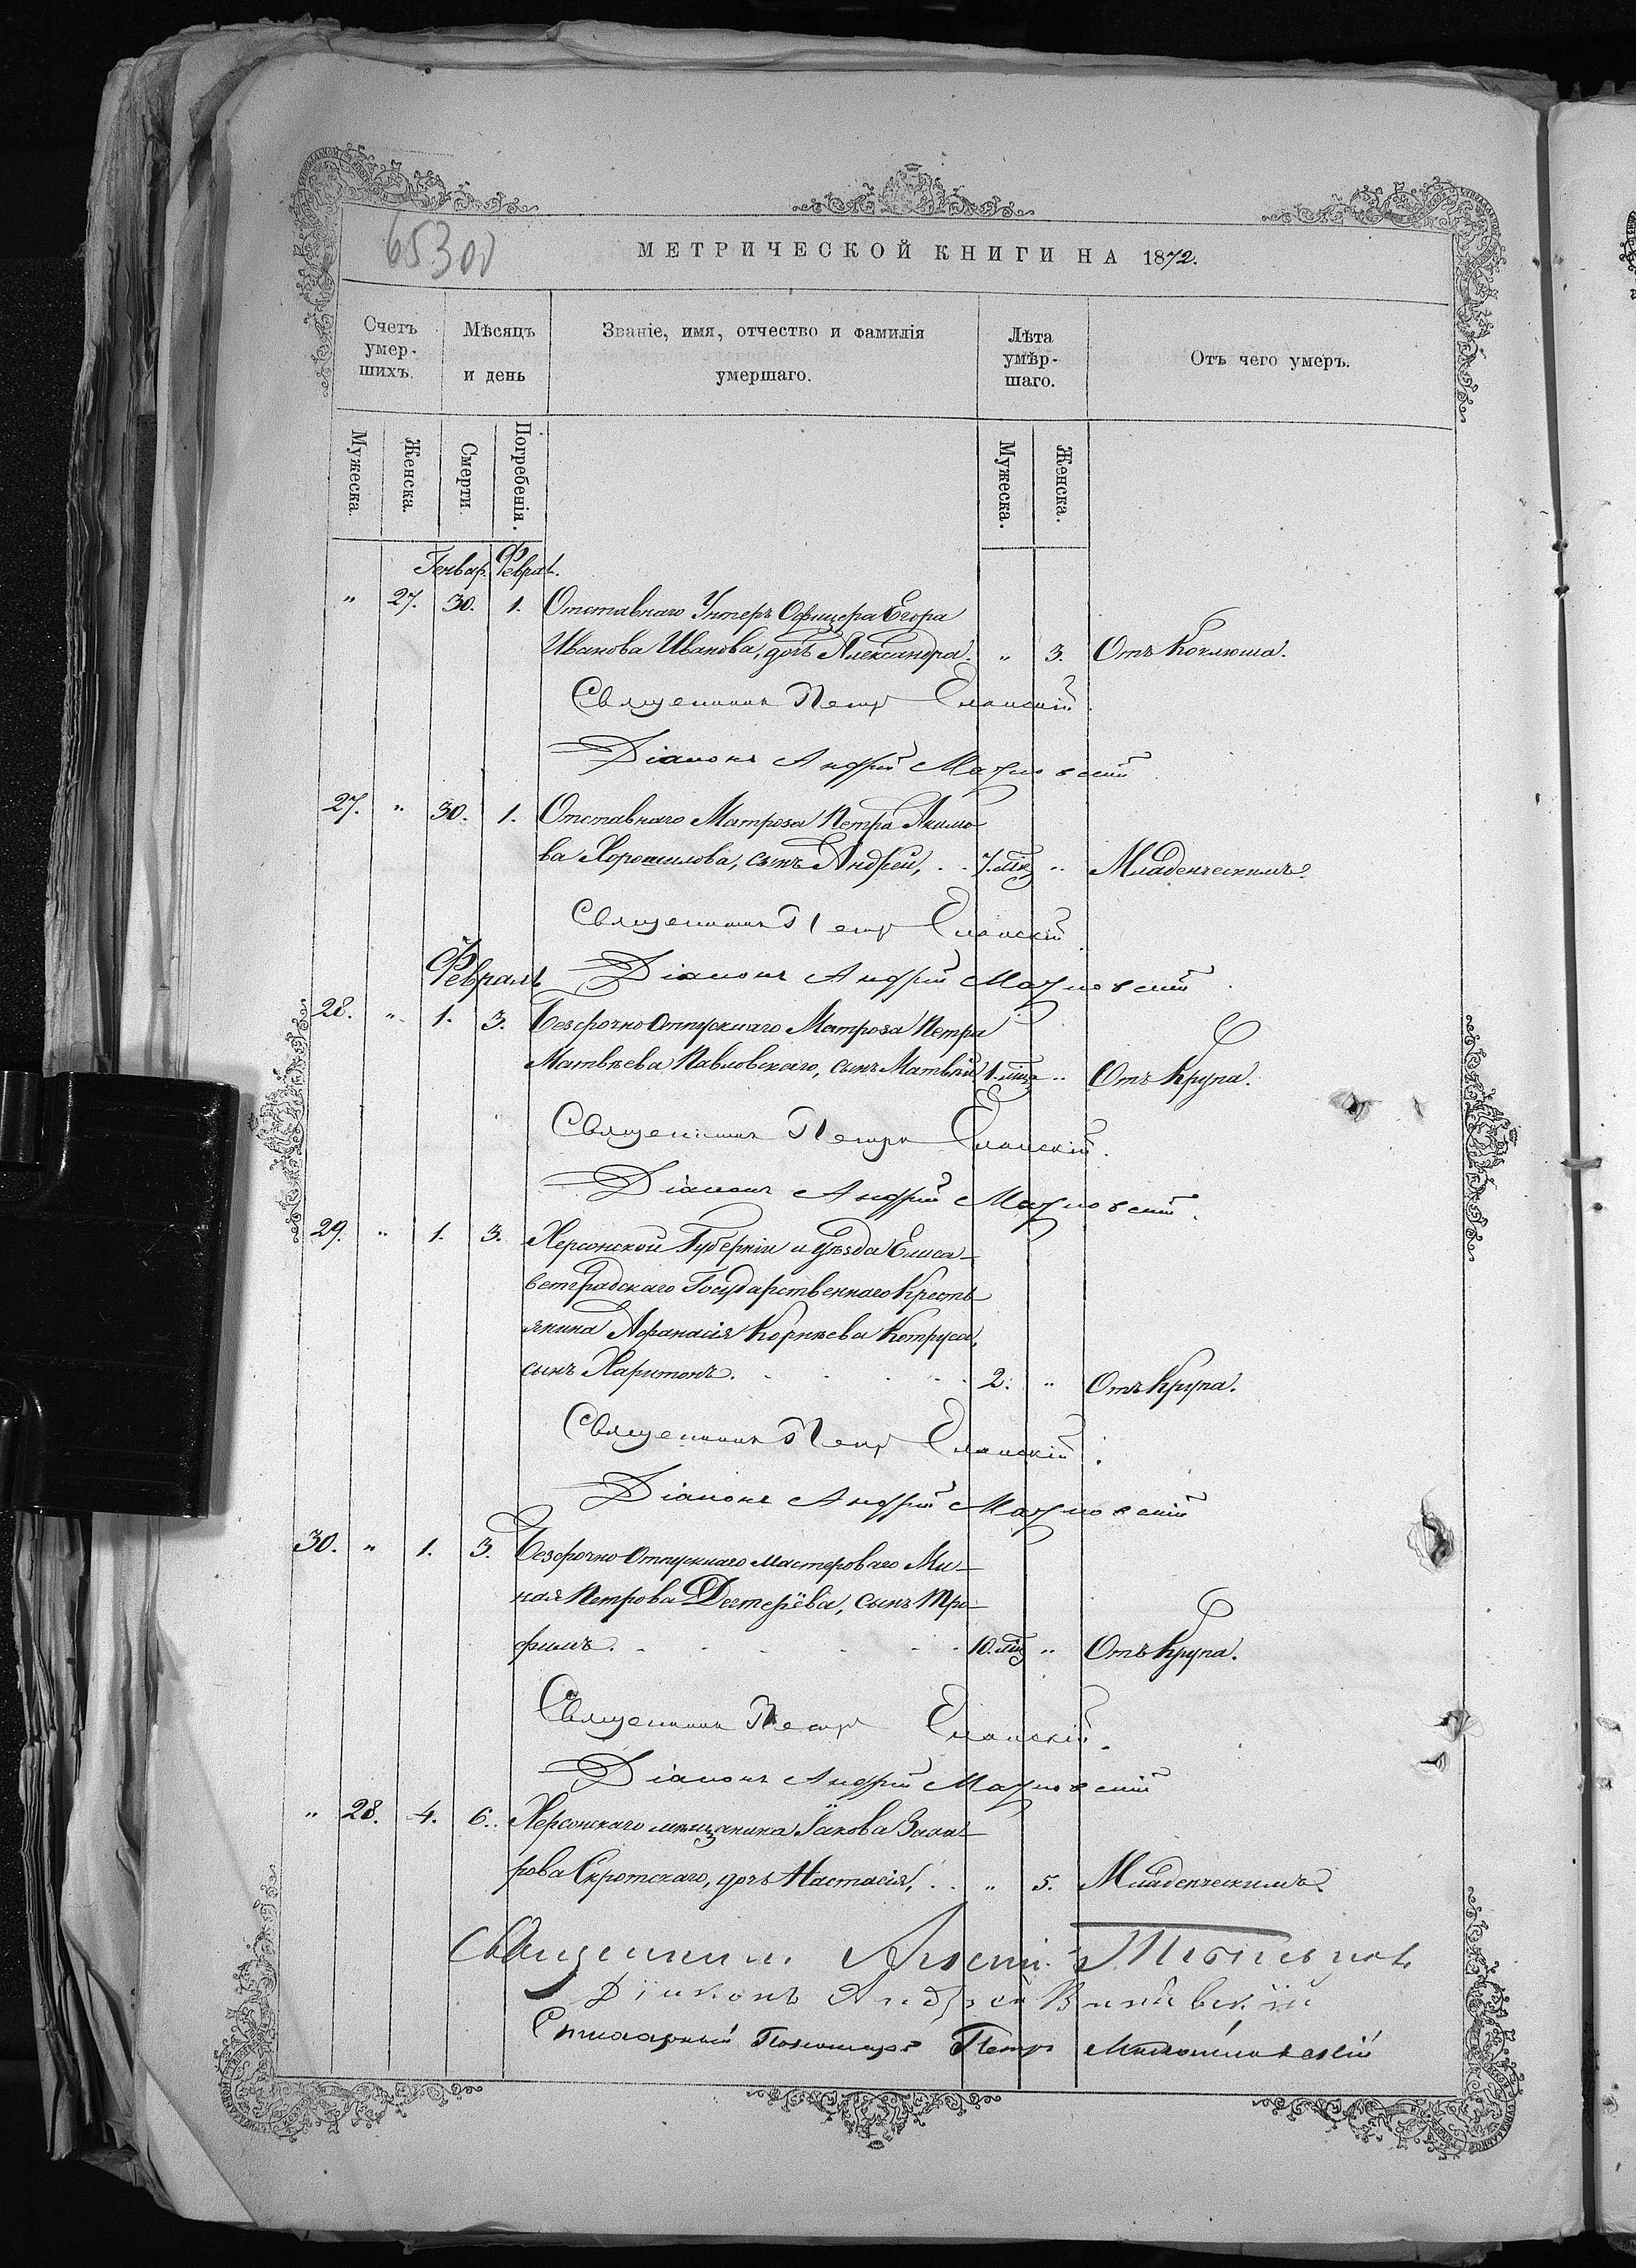 653 об
МЕТРИЧЕСКОЙ КНИГИ НА 1872.
Счетъ умер-шихъ.
Мѣсяцъ и день
Званіе, имя, отчество и фамилія умершаго.
Лѣта умѣр-шаго.
Отъ чего умеръ.
Мужеска.
Женска.
Смерти
Погребенія.
Мужеска.
Женска.
Генвар. Феврал.
" 27. 30. 1. Отставнаго Унтеръ Офицера Егора
Иванова Иванова, дочь Александра. " 3. Отъ Коклюша.
Священникъ Петръ Еланскій.
Діаконъ Андрей
27. " 30. 1. Отставнаго Матроза Петра Акимо
ва Хорошилова, сынъ Андрей, . . 7. мѣц " Младенческимъ.
Священникъ Петръ Еланскій.
Февраль
Діаконъ Андрей
28. " 1. 3. Безсрочно Отпускнаго Матроза Петра
Матвѣева Павловскаго, сынъ Матвѣй 1. мѣц " Отъ Крупа.
Священникъ Петръ Еланскій.
Діаконъ Андрей
29. " 1. 3. Херсонской Губерніи и Уѣзда Елиса-
ветградскаго Государственнаго Кресть
янина Афанасія Корнѣева Котруса,
сынъ Харитонъ. . . . . . 2. " Отъ Крупа.
Священникъ Петръ Еланскій.
Діаконъ Андрей
30. " 1. 3. Безсрочно Отпускнаго Мастероваго Ми-
ная Петрова Дегтерёва, сынъ Тро-
фимъ. . . . . . . 10. мѣц " Отъ Крупа.
Священникъ Петръ Еланскій.
Діаконъ Андрей
" 28. 4. 6. Херсонскаго мѣщанина Іакова Заха-
рова Скротскаго, дочь Настасія, . . " 5. Младенческимъ.
Священникъ Арсеній
Діаконъ Андрей
Пономарь Петръ